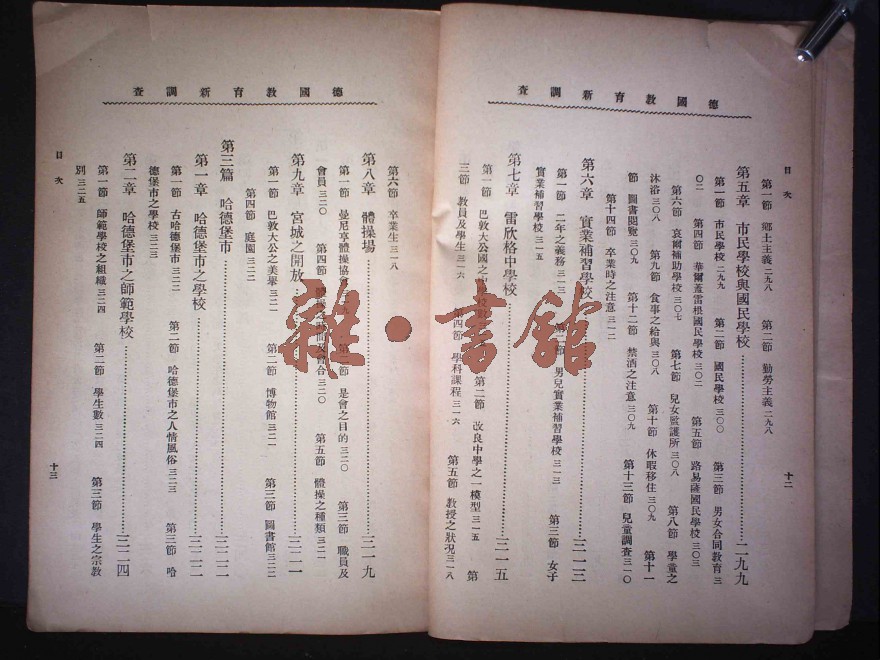 德國教育新調查
目次
十二
第一節 鄉土主義二九八 第二節 勤勞主義二九八
第五章 市民學校與國民學校…………二九九
第一節 市民學校二九九 第二節 國民學校三〇〇 第三節 男女合同教育三
〇二 第四節 華爾蓋雷根國民學校三〇二 第五節 路易薩國民學校三〇三
第六節 哀爾補助學校三〇七 第七節 兒女監護所三〇八 第八節 學童之
沐浴三〇八 第九節 食事之給與三〇八 第十節 休暇移住三〇九 第十一
節 圖書閱覽三〇九 第十二節 禁酒之注意三〇九 第十三節 兒童調查三一〇
第十四節 卒業時之注意三一二
第六章 實業補習學校…………三一三
第一節 二年之義務三一三 第二節 男兒實業補習學校三一三 第三節 女子
實業補習學校三一五
第七章 雷欣格中學校…………三一五
第一節 巴敦大公國之中 第二節 改良中學之一模型三一五 第
三節 教員及學生三一六 第四節 學科課程三一六 第五節 教授之狀況三一八
德國教育新調查
第六節 卒業生三一八
第八章 體操場…………三一九
第一節 曼尼亭體操協會 第二節 是會之目的三二〇 第三節 職員及
會員三二〇 第四節 第五節 體操之種類三二一
第九章 宮城之開放…………三二一
第一節 巴敦大公之美舉三二一 第二節 博物館三二一 第三節 圖書館三二二
第四節 庭園三二二
第三篇 哈德堡市…………三二二
第一章 哈德堡市之學校…………三二二
第一節 古哈德堡市三二二 第二節 哈德堡市之人情風俗三二三 第三節 哈
德堡市之學校三二三
第二章 哈德堡市之師範學校…………三二四
第一節 師範學校之組織三二四 第二節 學生數三二四 第三節 學生之宗教
別三二五
目次
十三
雜·書館